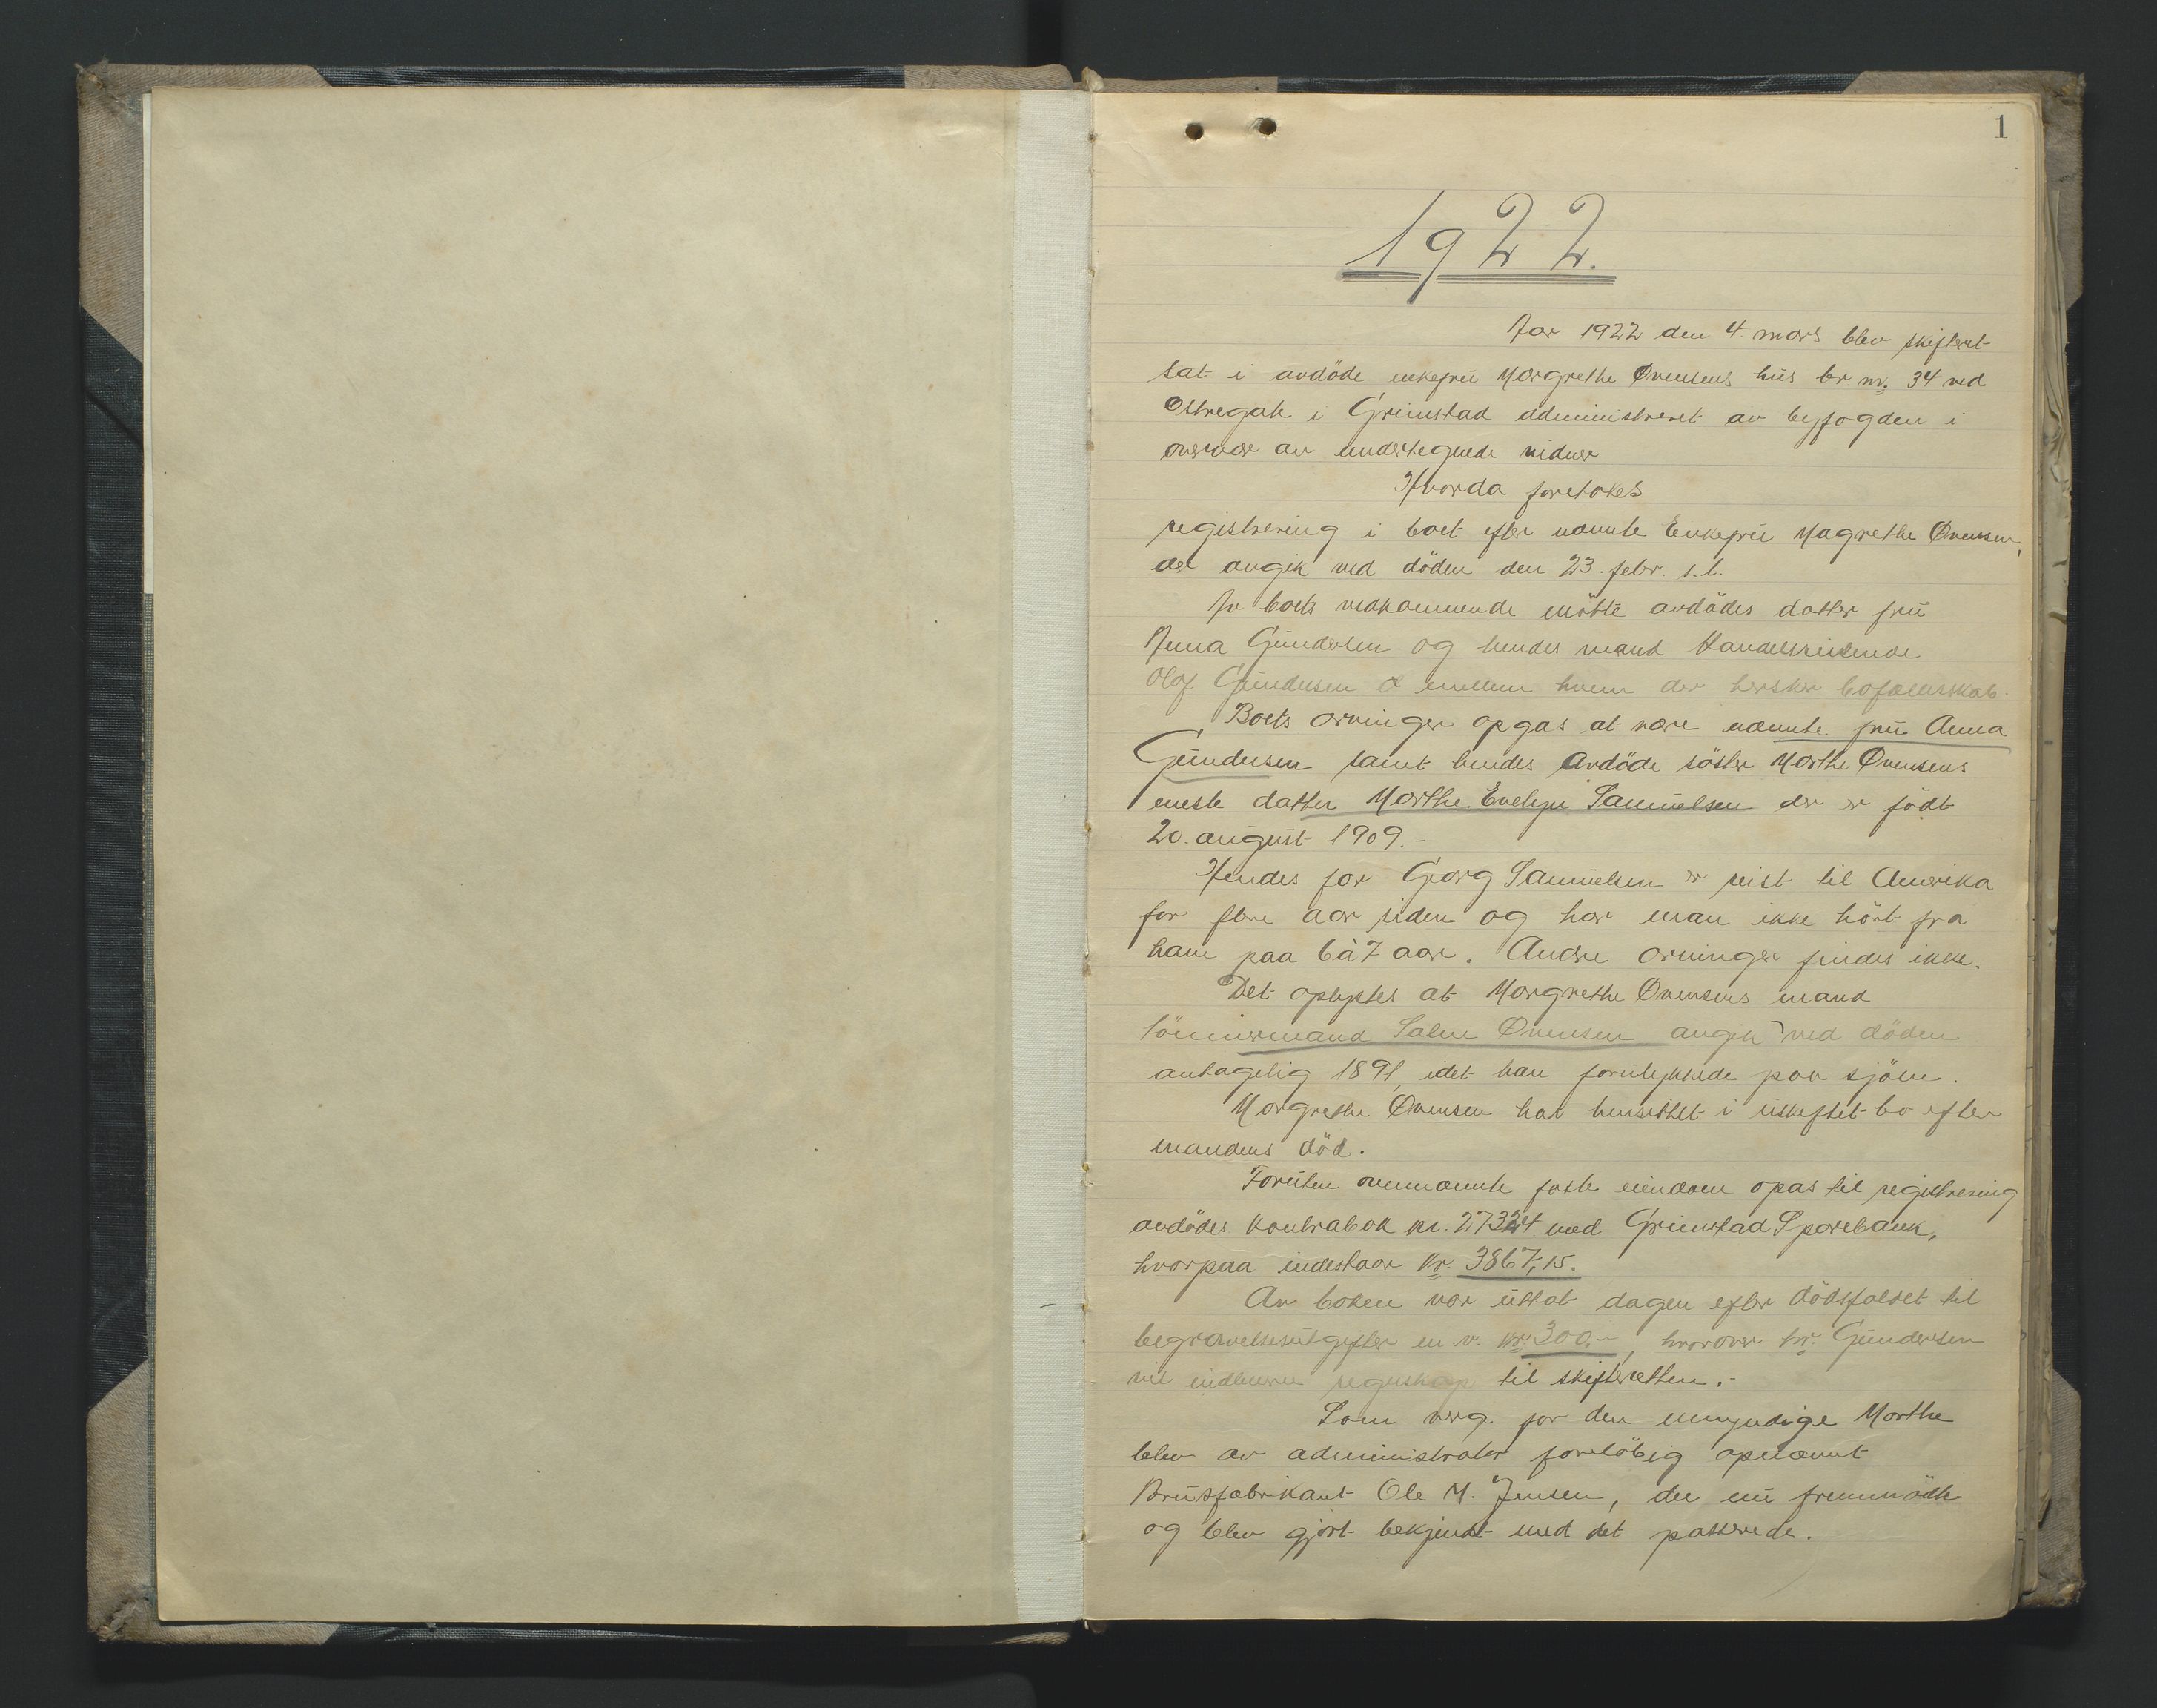 1
1922.
Aar 1922 den 4. mars blev skifteret
sat i avdöde enkefru Margrethe Ovensens hus br. nr. 34 ved
Østregate i Grimstad administreret av byfogden i
overvær av undertegnede vidner
Hvorda foretokes
registrering i boet efter nævnte Enkefru Magrethe Ovensen,
der avgik ved döden den 23. febr. s. l.
For boets vedkommende mötte avdödes datter fru
Anna Gundersen og hendes mand Handelsreisende
Olaf Gundersen mellem hvem der hersker bofællesskab.
Boets arvinger opgas at være nævnte fru Anna
Gundersen samt hendes avdöde söster Marthe Ovensens
eneste datter Marthe Evelyn Samuelsen der er födt
20. august 1909.-
Hendes far Georg Samuelsen er reist til Amerika
for flere aar siden og har man ikke hört fra
ham paa 6 à 7 aar. Andre arvinger findes ikke.
Det oplystes at Margrethe Ovensens mand
tömmermand Salve Ovensen avgik ved döden
antagelig 1891, idet han forulykkede paa sjöen.
Margrethe Ovensen har hensittet i uskiftet bo efter
mandens död.
Foruten ovennævnte faste eiendom opgas til registrering
avdödes Kontrabok nr. 27324 med Grimstad Sparebank,
hvorpaa indestaar kr. 3867,15.
Av boken var uttat dagen efter dödsfaldet til
begravelsesutgifter m. v. kr. 300.-, hvorover hr. Gundersen
vil indlevere regnskap til skifteretten.-
Som verge for den umyndige Marthe
blev av administrator foreløbig opnævnt
Brusfabrikant Ole M. Jensen, der nu fremmödte
og blev gjort bekjendt med det passerede.